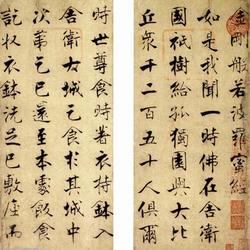 金剛般若波羅蜜經
如是我聞一時佛在舍衛
國祇樹給孤獨園與大比
丘衆千二百五十人俱爾
時世尊食時著衣持鉢入
舍衛大城乞食於其城中
次第乞已還至本處飯食
訖收衣鉢洗足已敷座而